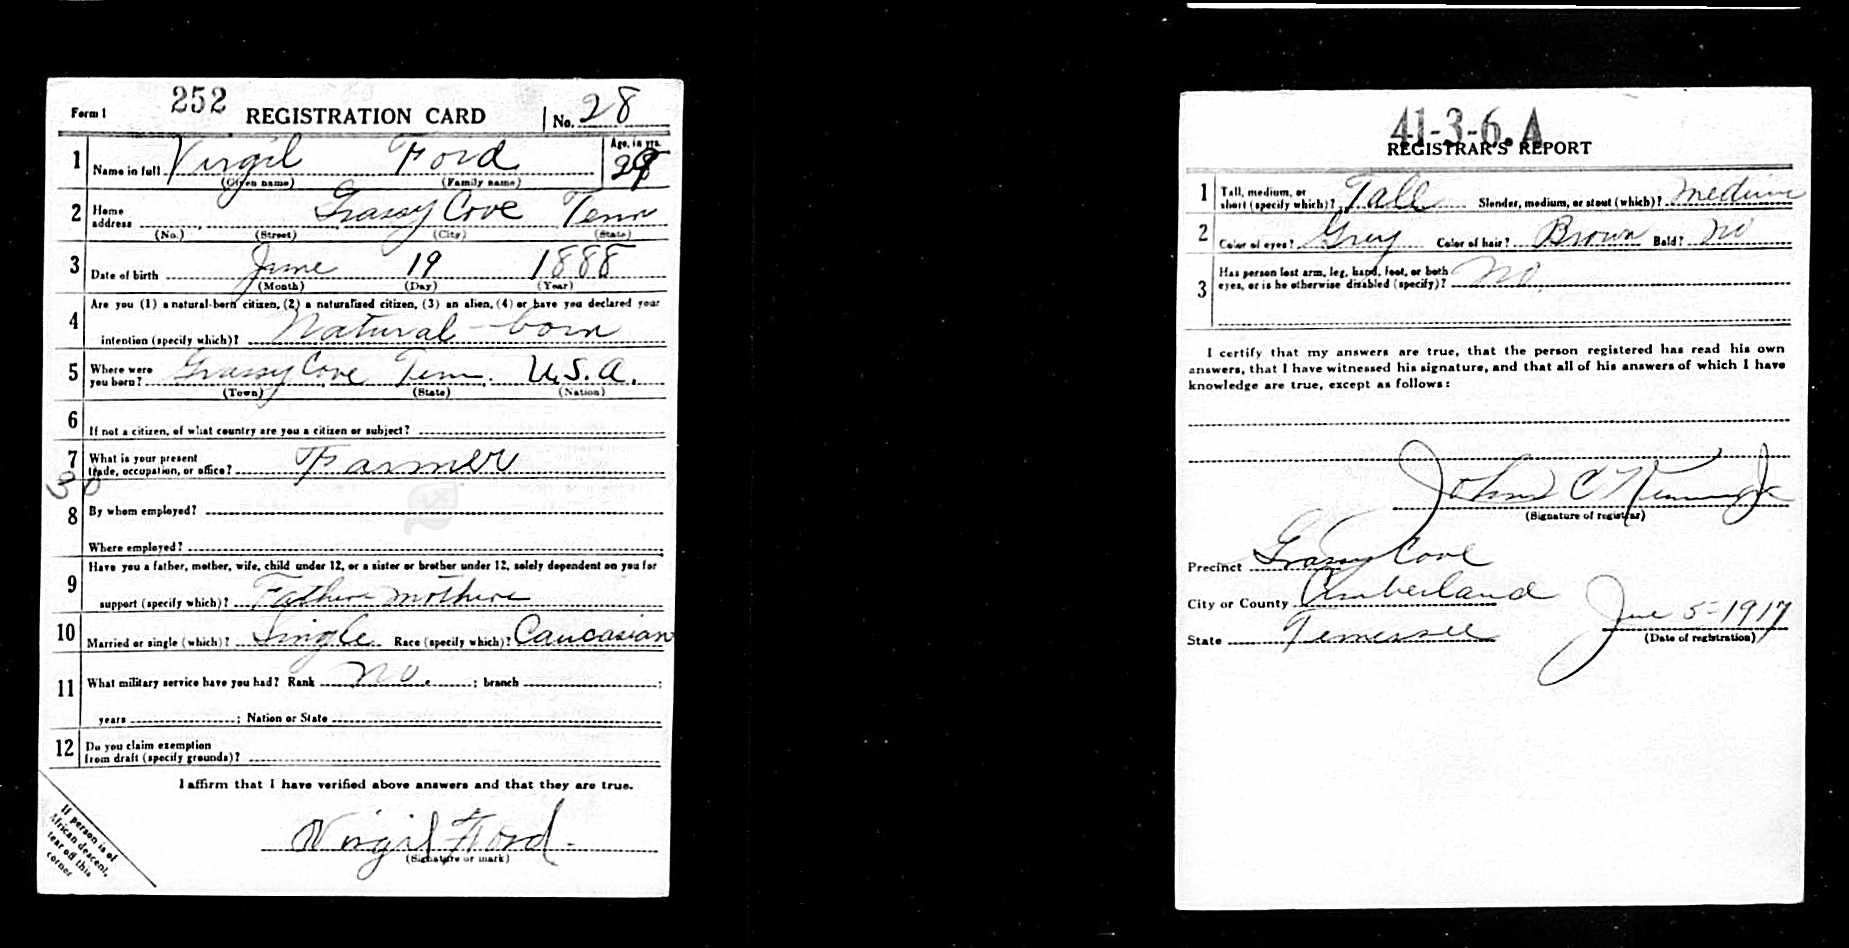 Form 1 252 REGISTRATION CARD No. 28
1 Name in full Virgil Ford Age, in yrs.
(Given name) (Family name)
2 Home address Grassy Cove Tenn
(No.) (Street) (City) (State)
3 Date of birth June 19 1888
(Month) (Day) (Year)
Are you (1) a natural-born citizen, (2) a naturalized citizen, (3) an alien, (4) or have you declared your
4 intention (specify which)? Natural-born
5 Where were you born? Grassy Cove Tenn. U.S.A.
(Town) (State) (Nation)
6 If not a citizen, of what country are you a citizen or subject?
7 What is your present trade, occupation, or office? Farmer
30
8 By whom employed?
Where employed?
Have you a father, mother, wife, child under 12, or a sister or brother under 12, solely dependent on you for
9 support (specify which)?
10 Married or single (which)? Single Race (specify which)? Caucasian
11 What military service have you had? Rank No. ; branch ;
years ; Nation or State
12 Do you claim exemption from draft (specify grounds)?
I affirm that I have verified above answers and that they are true.
Virgil Ford
(Signature or mark)
If person is of
African descent,
tear off this
corner
41-3-6. A
REGISTRAR'S REPORT
1 Tall, medium, or short (specify which)? Tall Slender, medium, or stout (which)? medium
2 Color of eyes? Grey Color of hair? Brown Bald? No
3 Has person lost arm, leg, hand, foot, or both eyes, or is he otherwise disabled (specify)? No.
I certify that my answers are true, that the person registered has read his own
answers, that I have witnessed his signature, and that all of his answers of which I have
knowledge are true, except as follows:
John C
(Signature of registrar)
Precinct Grassy Cove
City or County Cumberland
State Tennessee June 5-1917
(Date of registration)